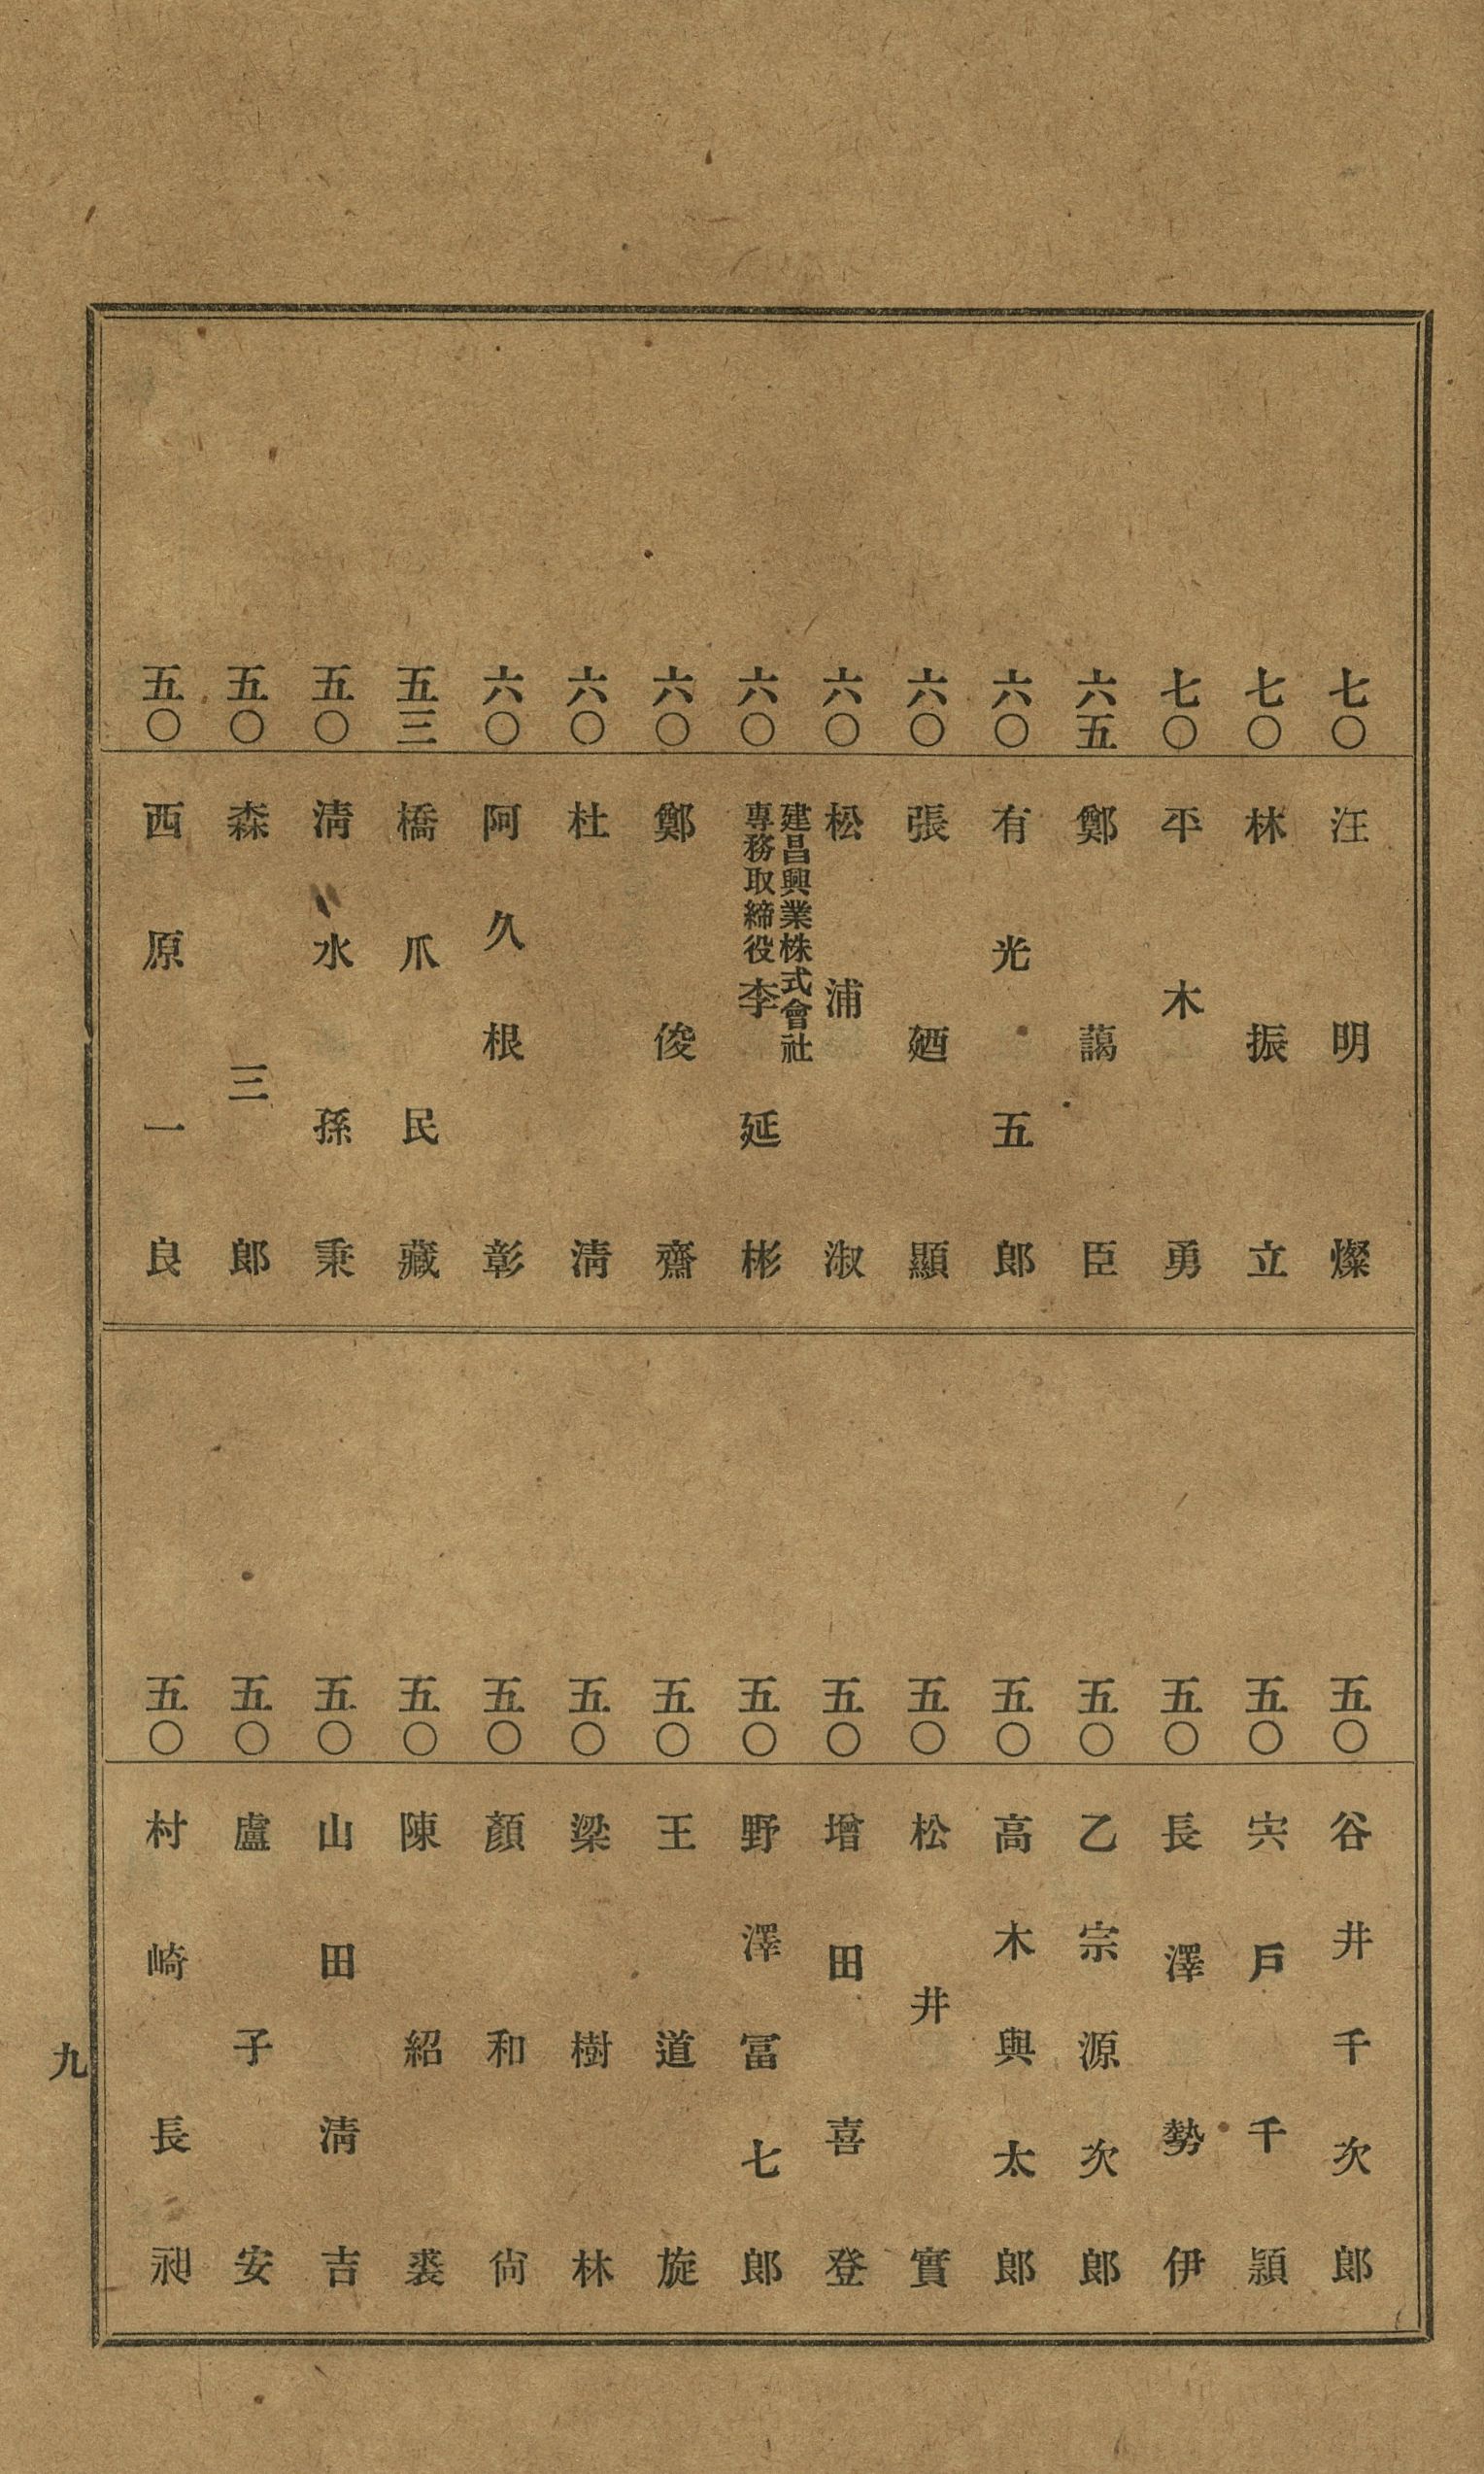 七〇 汪明燦
七〇 林振立
七〇 平木勇
六五 鄭藹臣
六〇 有光五郎
六〇 張廼顯
六〇 松浦淑
六〇 建昌興業株式會社專務取締役 李延彬
六〇 鄭俊齋
六〇 杜淸
六〇 阿久根彰
五三 橋爪民藏
五〇 淸水孫秉
五〇 森三郎
五〇 西原一良
五〇 谷井千次郎
五〇 宍戶千頴
五〇 長澤勢伊
五〇 乙宗源次郎
五〇 高木與太郎
五〇 松井實
五〇 增田喜登
五〇 野澤冨七郎
五〇 王道旋
五〇 梁樹林
五〇 顏和尙
五〇 陳紹裘
五〇 山田淸吉
五〇 盧子安
五〇 村崎長昶
九